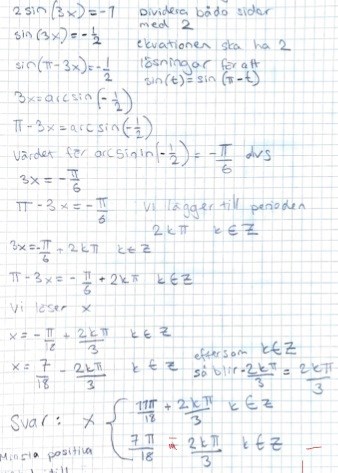 2 sin(3x) = -1 Dividera båda sidor
med 2
sin(3x) = -1/2 ekvationen ska ha 2
sin(π-3x) = -1/2 lösningar för att
sin(t) = sin(π-t)
3x = arcsin(-1/2)
π-3x = arcsin(-1/2)
Värdet för arcsin(-1/2) = -π/6 dvs
3x = -π/6
π-3x = -π/6 Vi lägger till perioden
2kπ k∈Z
3x = -π/6 + 2kπ k∈Z
π-3x = -π/6 + 2kπ k∈Z
Vi löser x
x = -π/18 + 2kπ/3 k∈Z
x = 7/18 - 2kπ/3 k∈Z eftersom k∈Z
så blir -2kπ/3 = 2kπ/3
Svar: x { 11π/18 + 2kπ/3 k∈Z
7π/18 = 2kπ/3 k∈Z
Minsta positiva